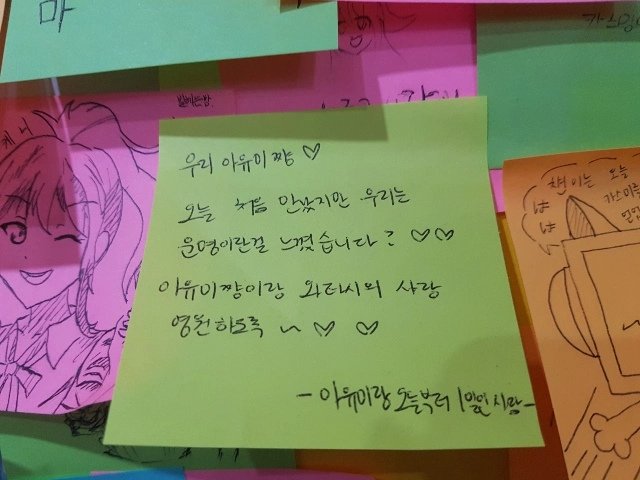 마
우리 아유미 쨩 ♡
오늘 처음 만났지만 우리는
운명이란걸 느꼈습니다 ♡♡
아유미쨩이랑 와타시의 사랑
영원하도록 ~ ♡ ♡
- 아유미랑 오늘부터 1일인 사람 -
챤이는 오늘
냐
냐